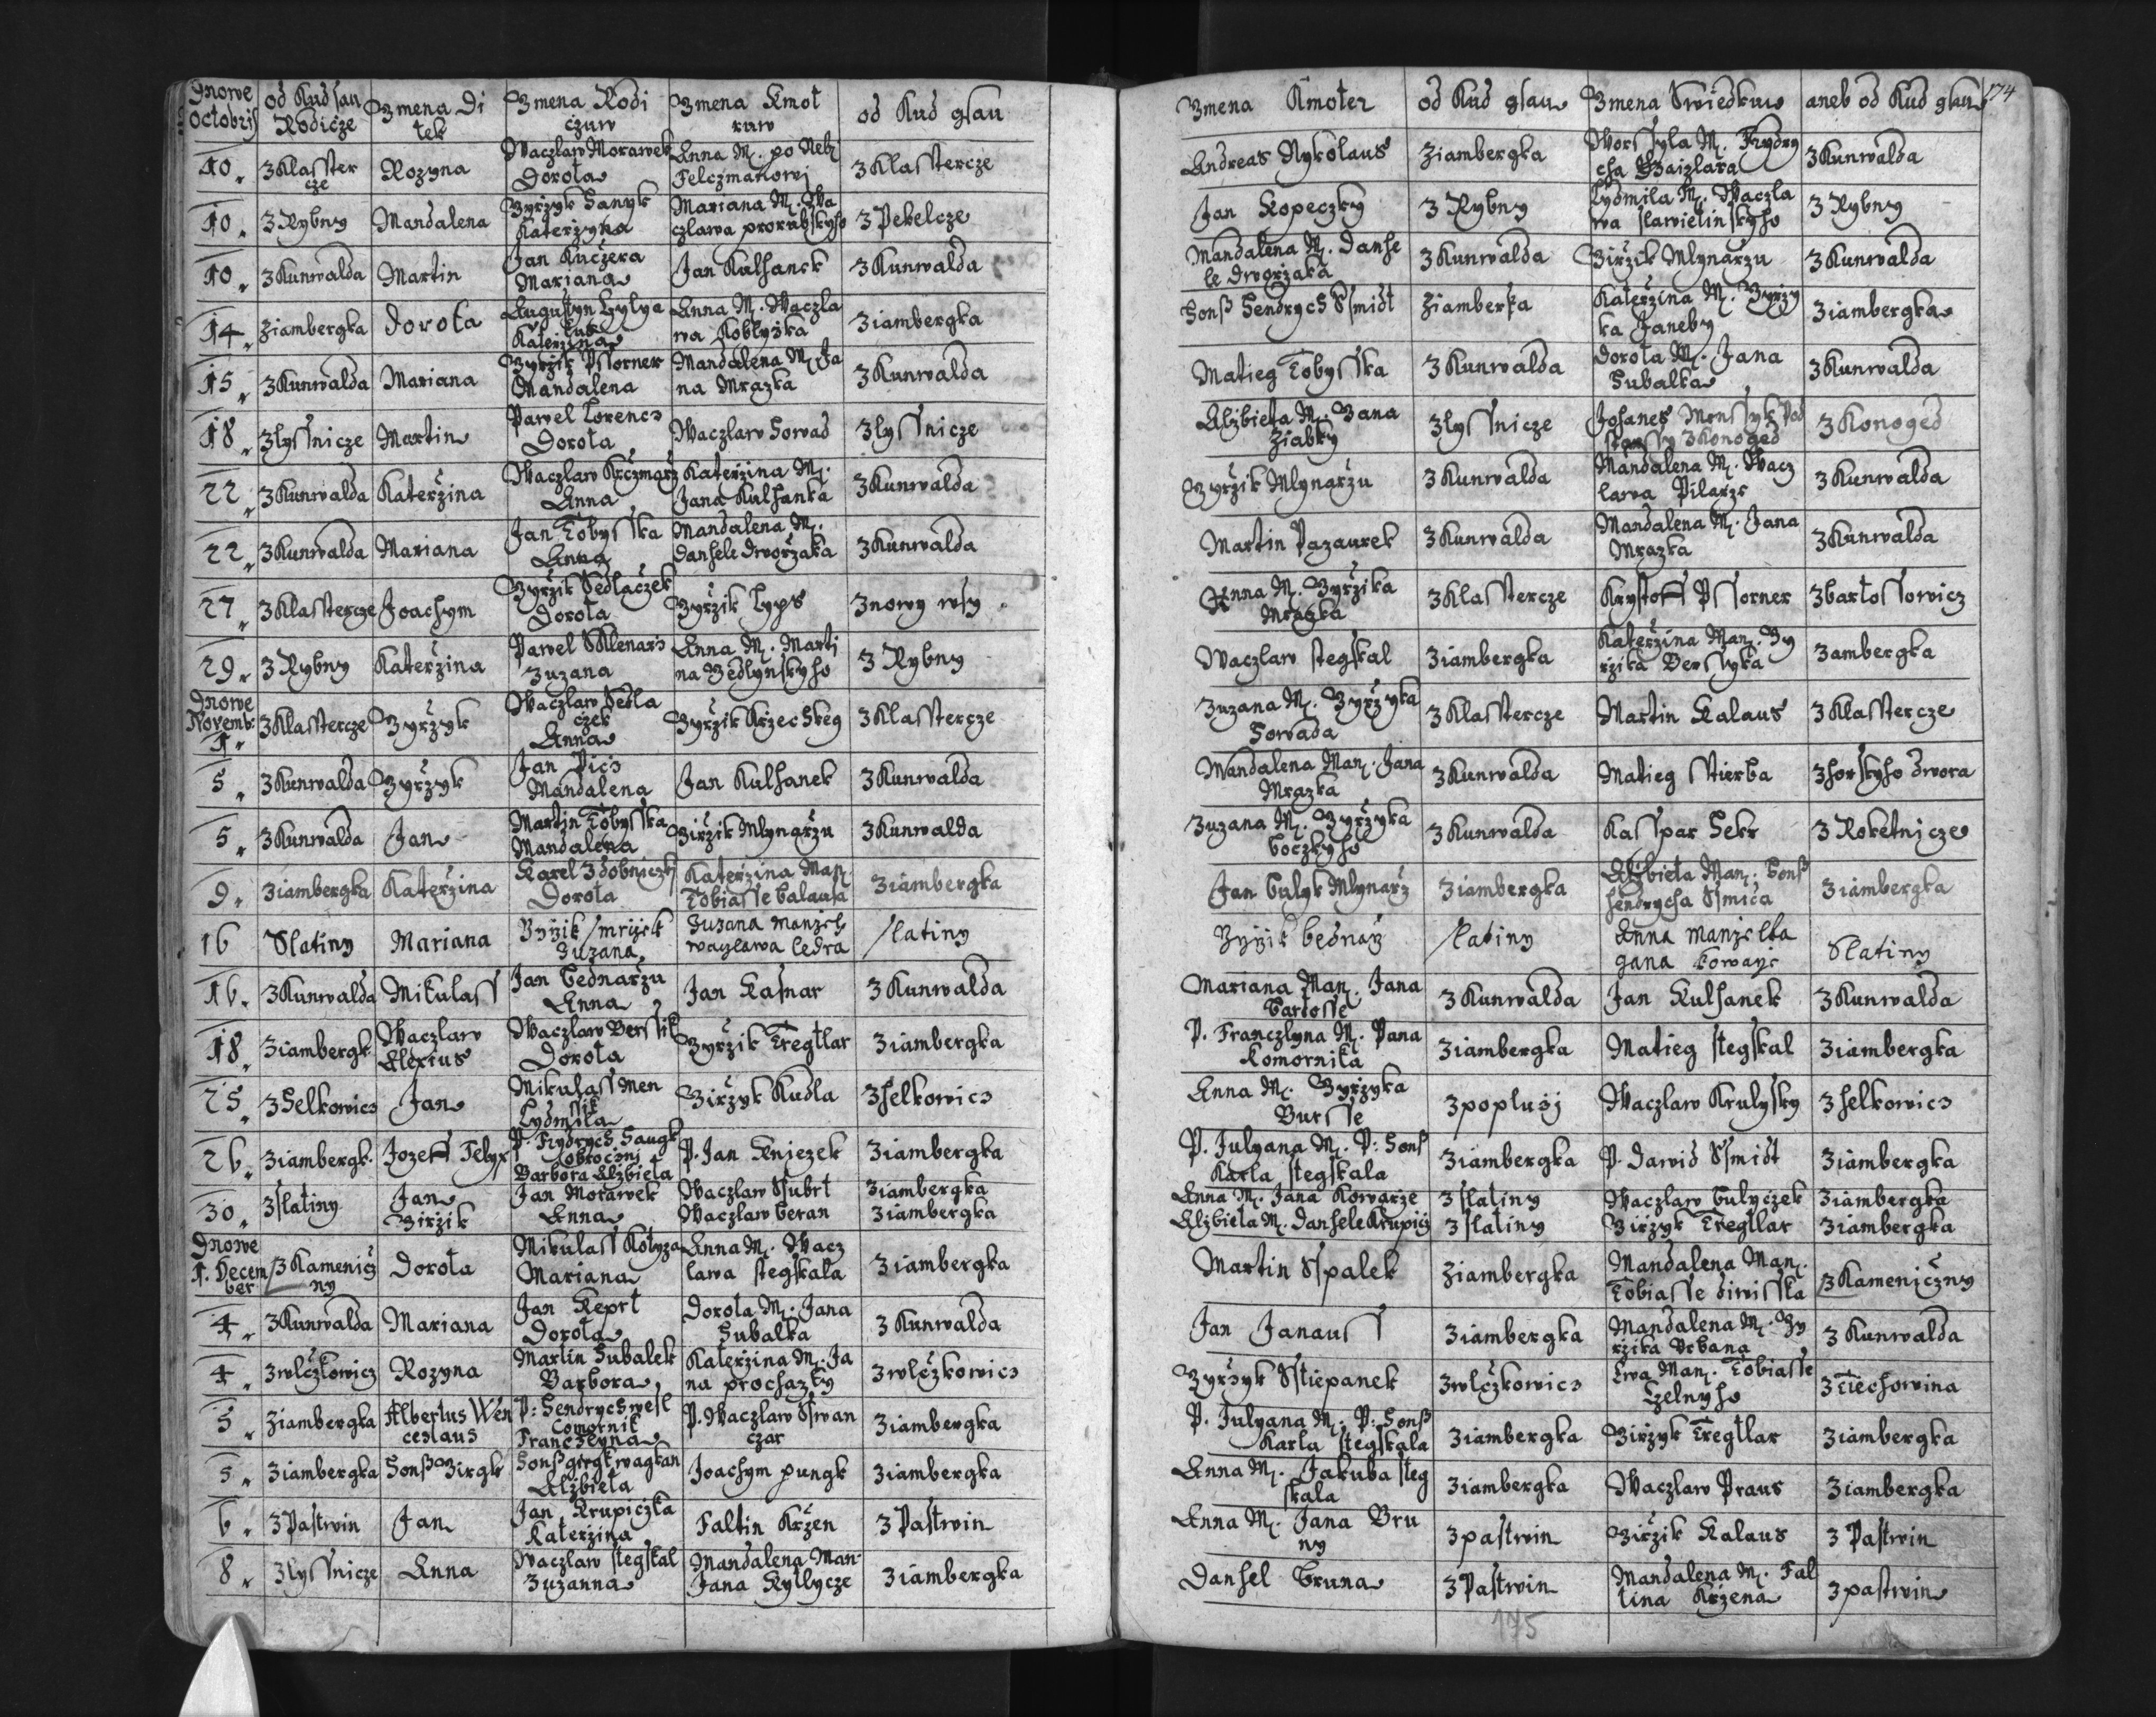 Dnowe Octobris | od Kud sau Rodicze | Zmena Di tek | Zmena Rodi czuw | Zmena Kmot ruw | od Kud gsau
10 | z Klasster cze | Rozyna | Waczlaw Morawek Dorota | Anna M. po Neb Felczmanowi | z Klastercze
10 | z Rybny | Mandalena | Katerzyna | Mariana M. Wa czlawa | z Pekelcze
10 | z Kunwalda | Martin | Jan Kuczera Mariana | Jan Kulhanek | z Kunwalda
14 | Ziambergka | Dorota | Augustyn Katerzina | Anna M. Waczla wa Koblyzka | Ziambergka
15 | z Kunwalda | Mariana | Zyrzik Pssorner Mandalena | Mandalena M. Ja na Mrazka | z Kunwalda
18 | z lyssnicze | Martin | Pawel Lorencz Dorota | Waczlaw Howad | z lyssnicze
22 | z Kunwalda | Katerzina | Waczlaw Krczmarz Anna | Katerzina M. Jana Kulhanka | z Kunwalda
22 | z Kunwalda | Mariana | Jan Tobysska Anna | Mandalena M. Danhele Dworzaka | z Kunwalda
27 | z Klastercze | Joachym | Zyrzik Sedlaczek Dorota | Zyrzik Lyps | z nowy wsy
29 | z Rybny | Katerzina | Pawel Sklenarz Zuzana | Anna M. Marti na Zedlynskyho | z Rybny
Dnowe Novemb: 1 | z Klastercze | Zyrzyk | Waczlaw Sedla czek Anna | Zyrzik | z Klastercze
5 | z Kunwalda | Zyrzyk | Jan Picz Mandalena | Jan Kulhanek | z Kunwalda
5 | z Kunwalda | Jan | Martin Tobysska Mandalena | Zirzik Mlynarzu | z Kunwalda
9 | Ziambergka | Katerzina | Karel Dorota | Katerzina Man. Tobiasse Balausa | Ziambergka
16 | Slatiny | Mariana | Zuzana | Zuzana manzel waclawa ledra | slatiny
16 | z Kunwalda | Mikulass | Jan Bednarzu Anna | Jan Kasnar | z Kunwalda
18 | Ziambergk. | Waczlaw Alexius | Waczlaw Berssik Dorota | Zyrzik Tregtlar | Ziambergka
25 | z Helkowicz | Jan | Mikulass Men ssik Lydmila | Zirzyk Kudla | z helkowicz
26 | Ziambergk. | Jozeff Felyx | P. Frydrych Haugk Obroczni Barbora Alzbieta | P. Jan Kniezek | Ziambergka
30 | z slatiny | Jan Zirzik | Jan Morawek Anna | Waczlaw Ssubrt Waczlaw Beran | Ziambergka Ziambergka
Dnowe 1. Decem ber | z Kamenicz ny | Dorota | Mikulass Kotyza Mariana | Anna M. Wacz lawa stegskala | Ziambergka
4 | z Kunwalda | Mariana | Jan Keprt Dorota | Dorota M. Jana Hubalka | z Kunwalda
4 | z wlczkowicz | Rozyna | Martin Hubalek Barbora | Katerzina M. Ja na prochazky | z wlczkowicz
5 | Ziambergka | Albertus Wen ceslaus | P: Hendrych wesl Comornik Franczlyna | P. Waczlaw Sswan czar | Ziambergka
5 | Ziambergka | Honß Zirgk | Alzbieta | Joachym pungk | Ziambergka
6 | z Pastwin | Jan | Jan Krupiczka Katerzina | Faltin Krzen | z Pastwin
8 | z lyssnicze | Anna | Waczlaw stegskal Zuzanna | Mandalena Man. Jana Kyllycze | Ziambergka
Zmena Kmoter | od Kud gsau | Zmena Swiedkuw | aneb od Kud gsau | 174
Andreas Nykolaus | Ziambergka | Worssyla M. Frydry cha | z Kunwalda
Jan Kopeczky | z Rybny | Lydmila M. Waczla wa slawietinskyho | z Rybny
Mandalena M. Danhe le Dworzaka | z Kunwalda | Zirzik Mlynarzu | z Kunwalda
Honß Hendrych Ssmidt | Ziamberka | Katerzina M. Zyrzy ka Janeby | Ziambergka
Matieg Tobysska | z Kunwalda | Dorota M. Jana Hubalka | z Kunwalda
Alzbieta M. Jana Ziabky | z lyssnicze | Johanes z Konoged | z Konoged
Zyrzik Mlynarzu | z Kunwalda | Mandalena M. Wacz lawa Pilarze | z Kunwalda
Martin Pazaurek | z Kunwalda | Mandalena M. Jana Mrazka | z Kunwalda
Anna M. Zyrzika Mrazka | z Klastercze | Krystoff Pssorner | z bartossowicz
Waczlaw stegskal | Ziambergka | Katerzina Man. Zy rzika Berssyka | Zambergka
Zuzana M. Zyrzyka Howada | z Klastercze | Martin Kalaus | z Klastercze
Mandalena Man. Jana Mrazka | z Kunwalda | Matieg Stierba | z horskyho dwora
Zuzana M. Zyrzyka boczkyho | z Kunwalda | Kasspar Hekr | z Roketnicze
Jan Culyk Mlynarz | Ziambergka | Alzbieta Man. Honß Hendrycha Ssmida | Ziambergka
bednarz | slatiny | Anna manzelka gana kowarze | Slatiny
Mariana Man. Jana Bartosse | z Kunwalda | Jan Kulhanek | z Kunwalda
P. Franczlyna M. Pana Komornika | Ziambergka | Matieg stegskal | Ziambergka
Anna M. Zyrzyka Bursse | z popluzj | Waczlaw Krulysky | z helkowicz
P. Julyana M. P: Honß Karla stegskala | Ziambergka | P. Dawid Ssmidt | Ziambergka
Anna M. Jana Kowarze | z slatiny | Waczlaw Culyczek | Ziambergka
Alzbieta M. Danhele Krupicz | z slatiny | Zirzyk Tregtlar | Ziambergka
Martin Sspalek | Ziambergka | Mandalena Man. Tobiasse diwisska | z Kameniczny
Jan Janauss | Ziambergka | Mandalena M. Zy rzika Urbana | z Kunwalda
Zyrzyk Sstiepanek | z wlczkowicz | Ewa Man. Tobiasse Zelnyho | z Tiechowina
P. Julyana M. P: Honß Karla stegskala | Ziambergka | Zirzyk Tregtlar | Ziambergka
Anna M. Jakuba steg skala | Ziambergka | Waczlaw Praus | Ziambergka
Anna M. Jana Bru ny | z pastwin | Zirzik Kalaus | z Pastwin
Danhel Bruna | z Pastwin | Mandalena M. Fal tina Krzena | z pastwin
175